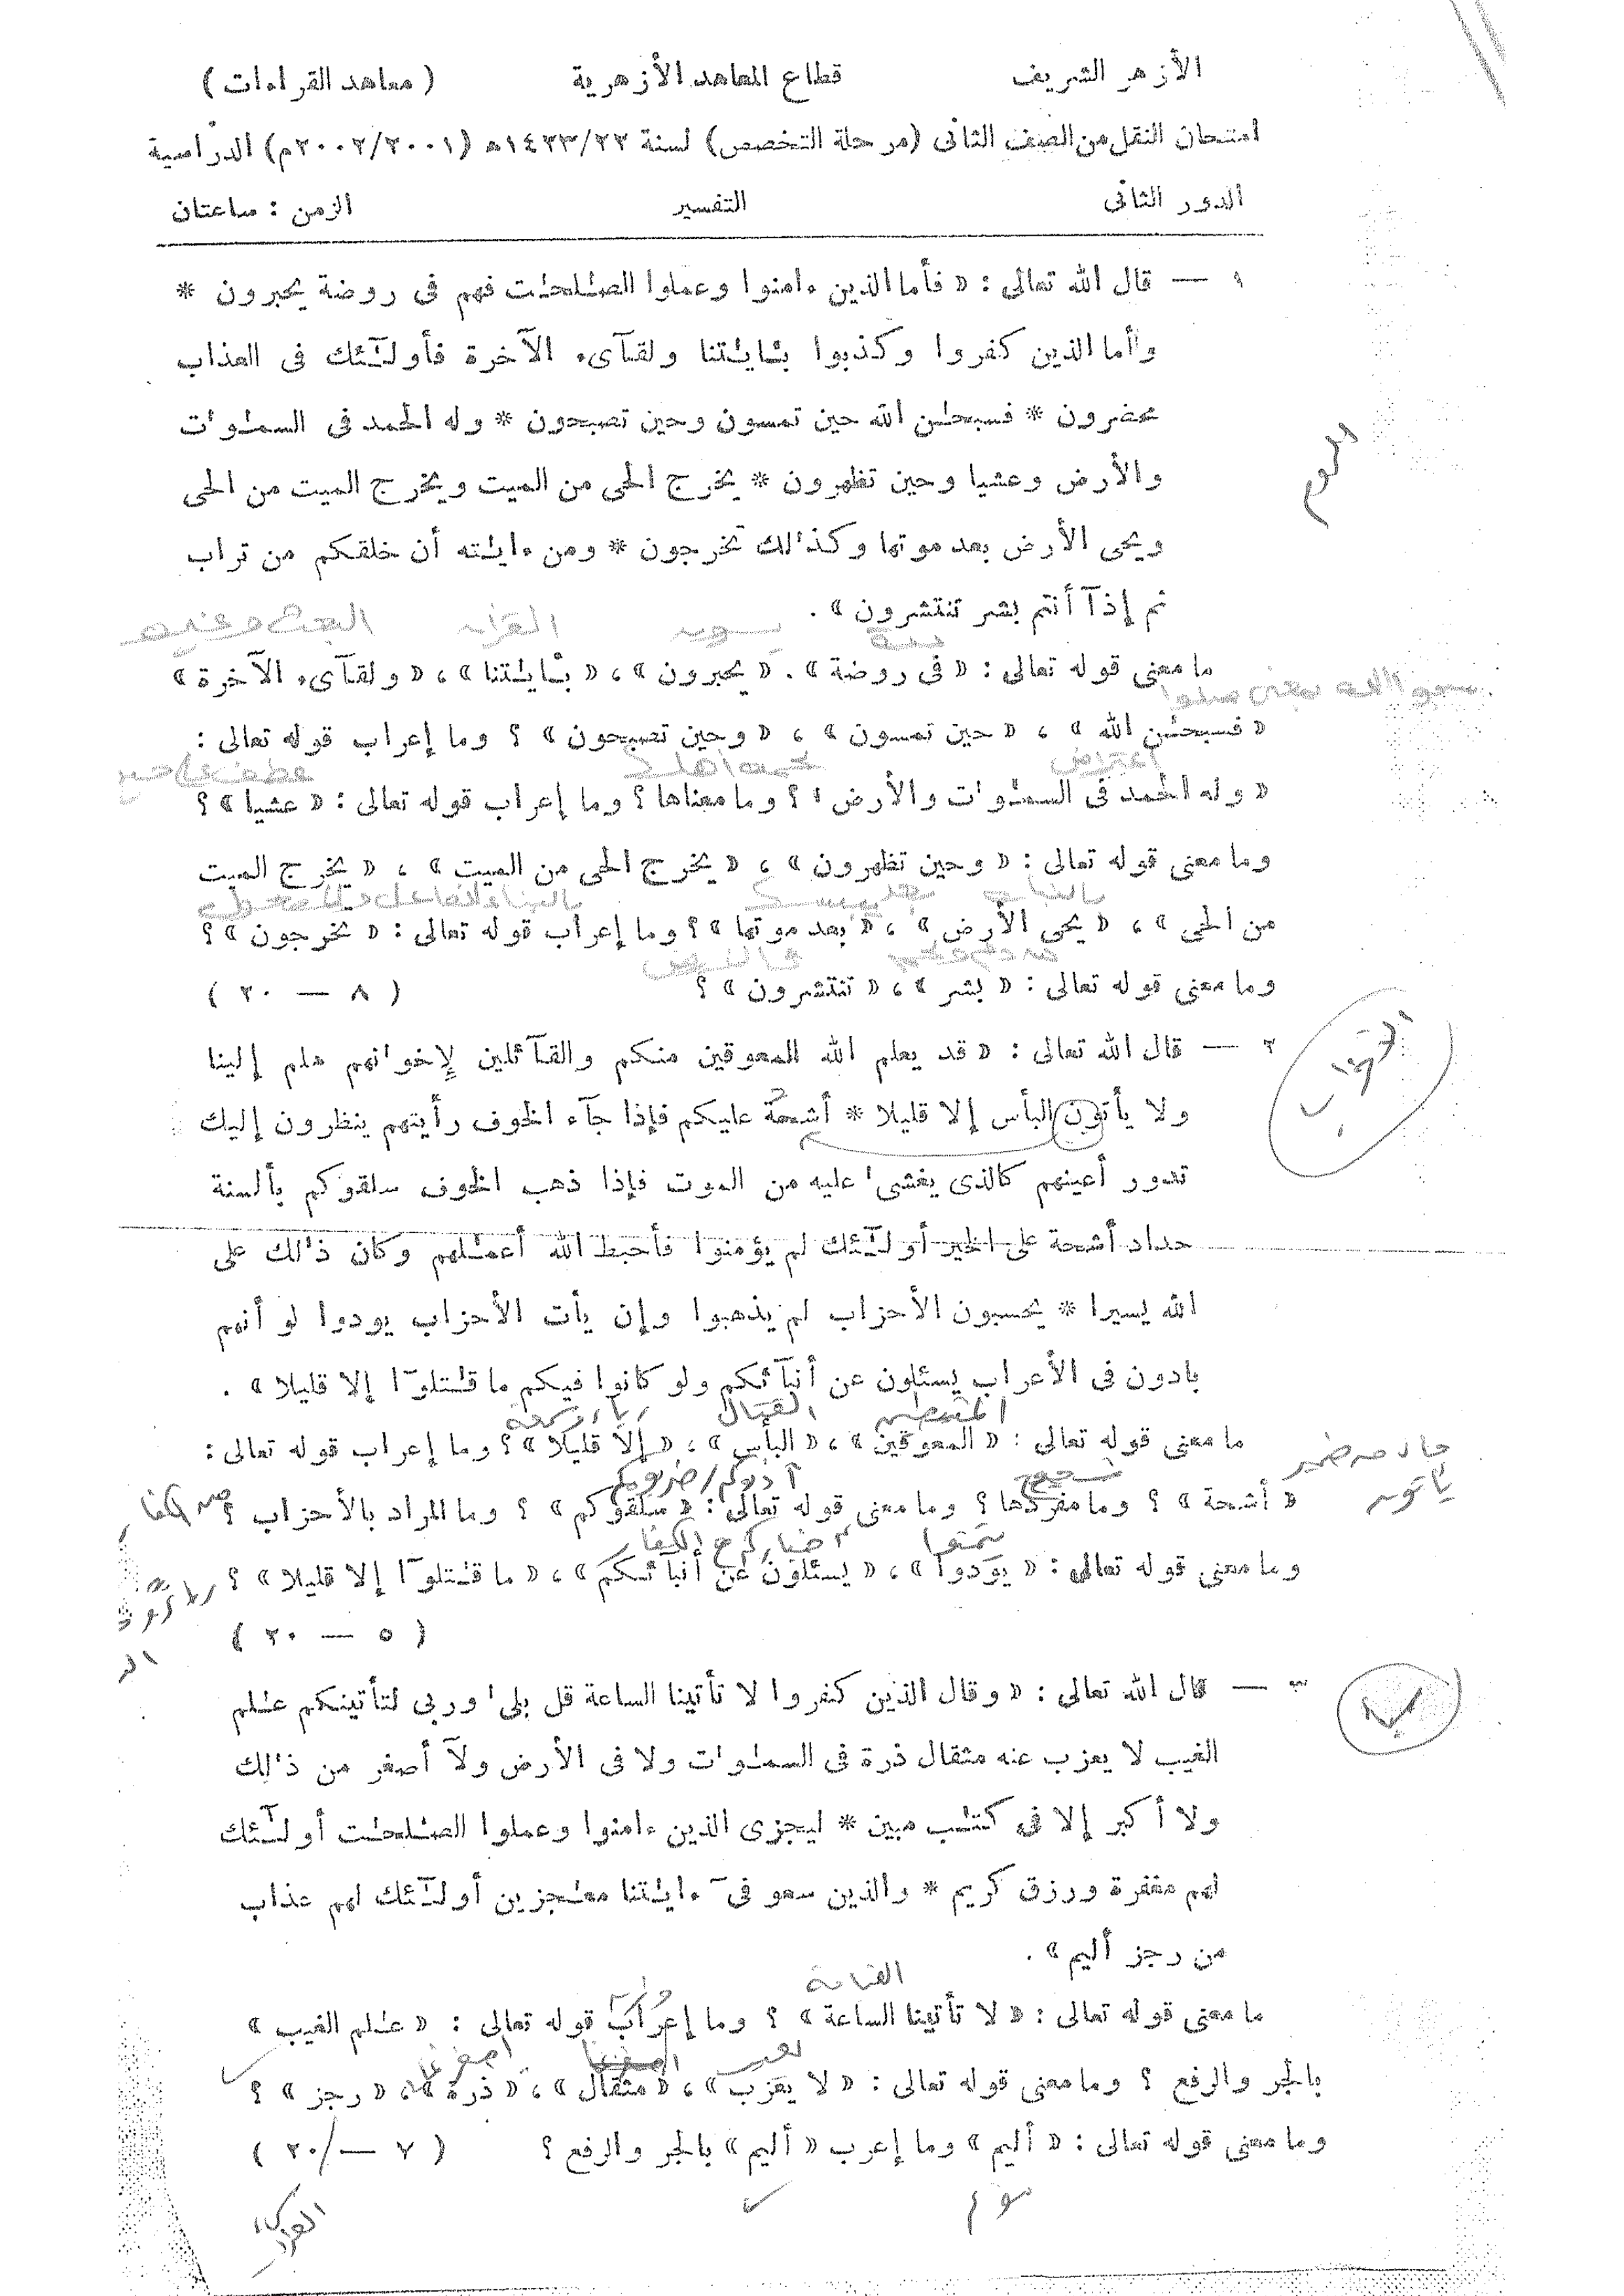 الأزهر الشريف قطاع المعاهد الأزهرية (معاهد القراءات)
امتحان النقل من الصف الثانى (مرحلة التخصص) لسنة ١٤٢٣/٢٢هـ (٢٠٠٢/٢٠٠١م) الدراسية
الدور الثانى التفسير الزمن : ساعتان
١ — قال الله تعالى : « فأما الذين ءامنوا وعملوا الصٰلحٰت فهم فى روضة يحبرون *
وأما الذين كفروا وكذبوا بـٔايٰتنا ولقآىء الآخرة فأولٰٓئك فى العذاب
محضرون * فسبحٰن الله حين تمسون وحين تصبحون * وله الحمد فى السمٰوٰت
والأرض وعشيا وحين تظهرون * يخرج الحى من الميت ويخرج الميت من الحى
ويحى الأرض بعد موتها وكذٰلك تخرجون * ومن ءايٰته أن خلقكم من تراب
ثم إذآ أنتم بشر تنتشرون » .
ما معنى قوله تعالى : « فى روضة » . « يحبرون » ، « بـٔايٰتنا » ، « ولقآىء الآخرة »
« فسبحٰن الله » ، « حين تمسون » ، « وحين تصبحون » ؟ وما إعراب قوله تعالى :
« وله الحمد فى السمٰوٰت والأرض » ؟ وما معناها ؟ وما إعراب قوله تعالى : « عشيا » ؟
وما معنى قوله تعالى : « وحين تظهرون » ، « يخرج الحى من الميت » ، « يخرج الميت
من الحى » ، « يحى الأرض » ، « بعد موتها » ؟ وما إعراب قوله تعالى : « تخرجون » ؟
وما معنى قوله تعالى : « بشر » ، « تنتشرون » ؟ ( ٨ — ٢٠ )
٢ — قال الله تعالى : « قد يعلم الله المعوقين منكم والقآئلين لإخوٰنهم هلم إلينا
ولا يأتون البأس إلا قليلا * أشحة عليكم فإذا جآء الخوف رأيتهم ينظرون إليك
تدور أعينهم كالذى يغشىٰ عليه من الموت فإذا ذهب الخوف سلقوكم بألسنة
حداد أشحة على الخير أولٰٓئك لم يؤمنوا فأحبط الله أعمٰلهم وكان ذٰلك على
الله يسيرا * يحسبون الأحزاب لم يذهبوا وإن يأت الأحزاب يودوا لو أنهم
بادون فى الأعراب يسئلون عن أنبآئكم ولو كانوا فيكم ما قٰتلوٓا إلا قليلا » .
القتال
ما معنى قوله تعالى : « المعوقين » ، « البأس » ، « إلا قليلا » ؟ وما إعراب قوله تعالى :
حال من ضمير
يأتون
« أشحة » ؟ وما مفردها ؟ وما معنى قوله تعالى : « سلقوكم » ؟ وما المراد بالأحزاب ؟
وما معنى قوله تعالى : « يودوا » ، « يسئلون عن أنبآئكم » ، « ما قٰتلوٓا إلا قليلا » ؟
( ٥ — ٢٠ )
٣ — قال الله تعالى : « وقال الذين كفروا لا تأتينا الساعة قل بلىٰ وربى لتأتينكم عٰلم
الغيب لا يعزب عنه مثقال ذرة فى السمٰوٰت ولا فى الأرض ولآ أصغر من ذٰلك
ولا أكبر إلا فى كتٰب مبين * ليجزى الذين ءامنوا وعملوا الصٰلحٰت أولٰٓئك
لهم مغفرة ورزق كريم * والذين سعو فىٓ ءايٰتنا معٰجزين أولٰٓئك لهم عذاب
من رجز أليم » .
القيامة
ما معنى قوله تعالى : « لا تأتينا الساعة » ؟ وما إعراب قوله تعالى : « عٰلم الغيب »
بالجر والرفع ؟ وما معنى قوله تعالى : « لا يعزب » ، « مثقال » ، « ذرة » ، « رجز » ؟
وما معنى قوله تعالى : « أليم » وما إعرب « أليم » بالجر والرفع ؟ ( ٧ — ٢٠ )